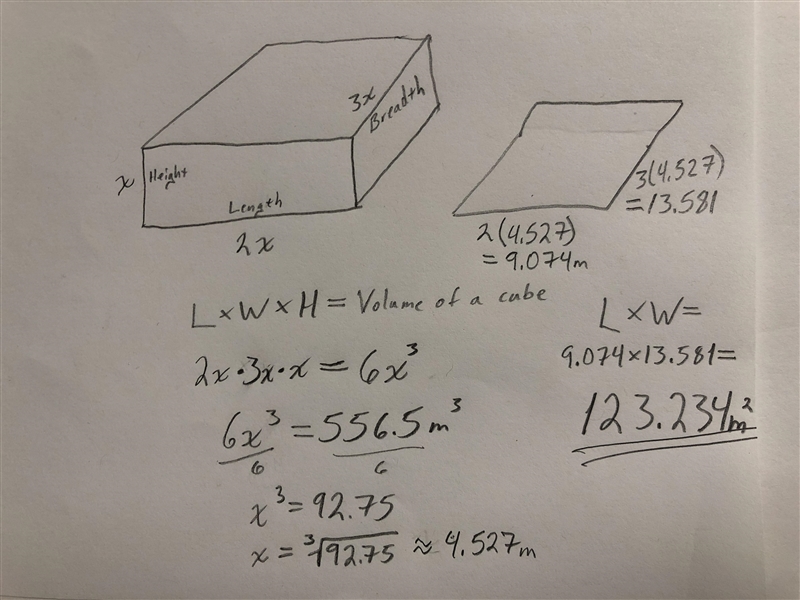 3x
Breadth
x
Height
Length
2x
3(4.527)
=13.581
2(4.527)
= 9.074m
L×W×H= Volume of a cube
2x•3x•x = 6x³
6x³ = 556.5m³
6 6
x³= 92.75
x = ³√92.75 ≈ 4.527m
L×W=
9.074×13.581=
123.234m²